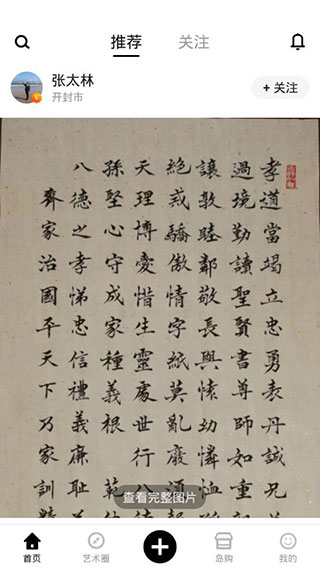 推荐
关注
张太林
开封市
+ 关注
孝道當竭立忠勇表丹誠兄
過境勤讀聖賢書尊師如重
讓敦睦鄰敬長與懷幼憐恤
絕戎驕傲情字紙莫亂廢
天理博愛惜生靈處世行八
孫堅心守成家種義根
八德之孝悌忠信禮義廉恥
齊家治國平天下乃家訓
查看完整图片
首页
艺术圈
岛购
我的